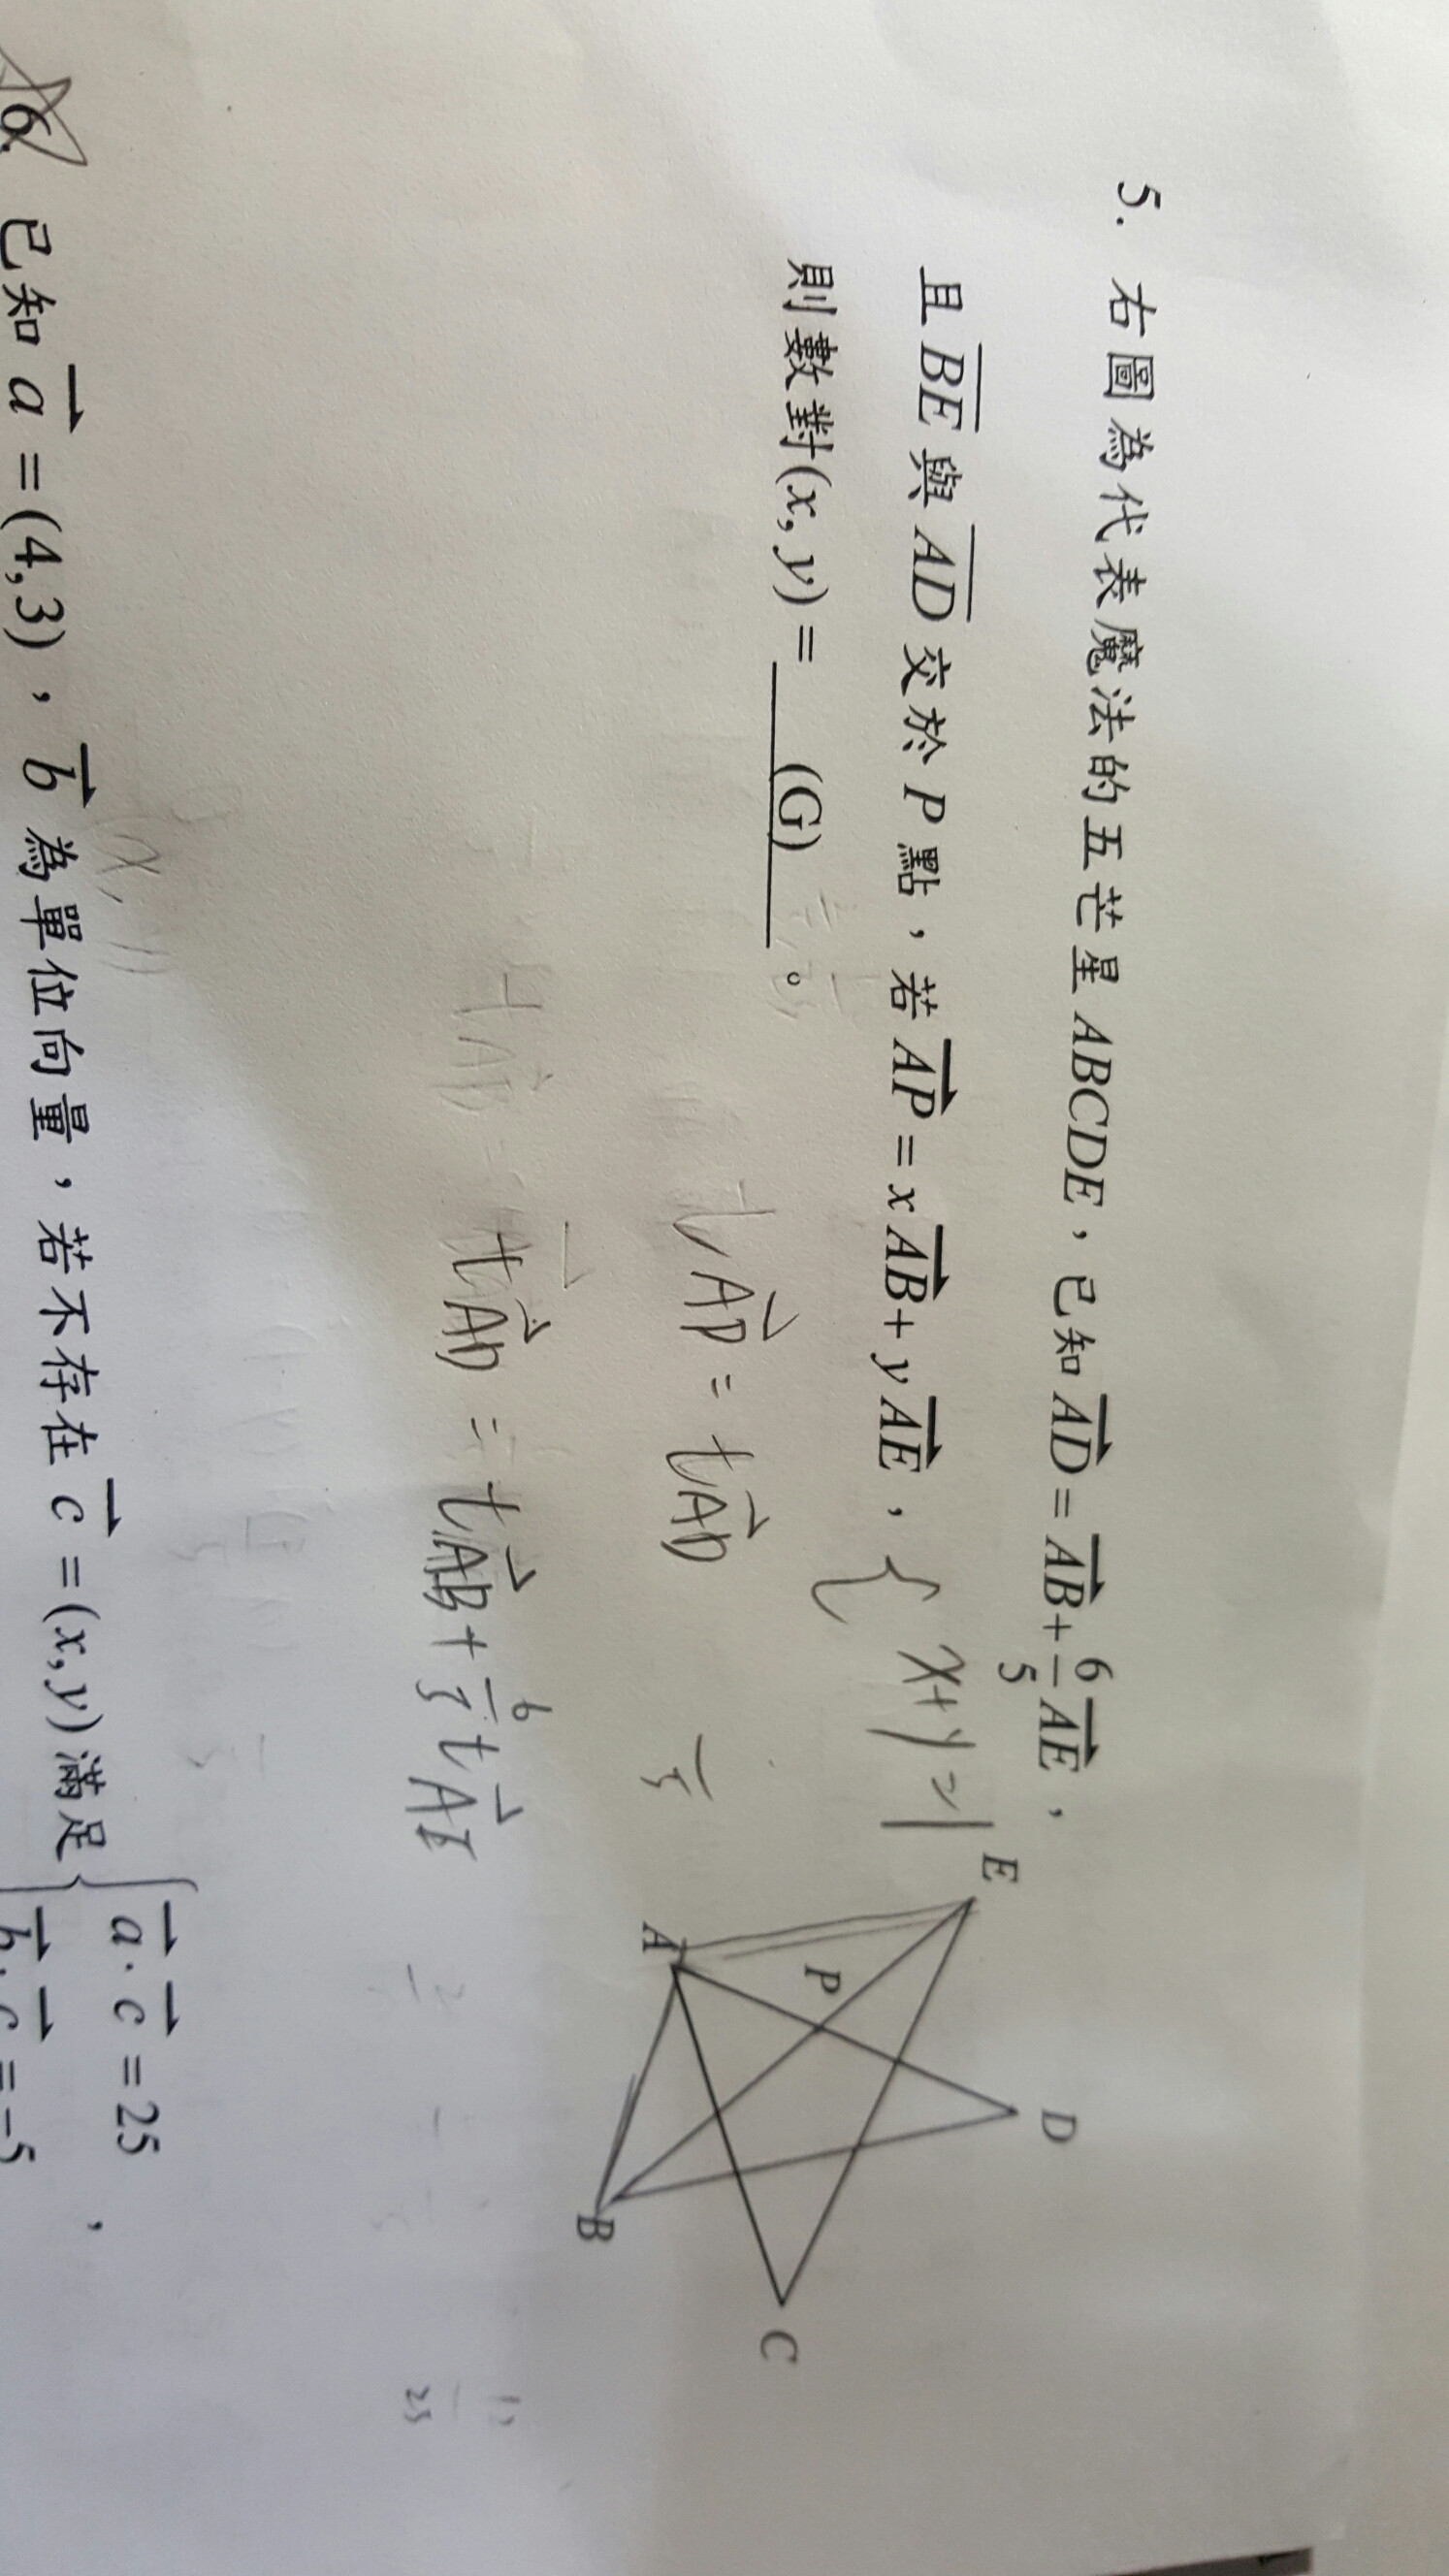 5. 右圖為代表魔法的五芒星 ABCDE,已知 $\overrightarrow{AD}=\overrightarrow{AB}+\frac{6}{5}\overrightarrow{AE}$,
且 $\overline{BE}$ 與 $\overline{AD}$ 交於 P 點,若 $\overrightarrow{AP}=x\overrightarrow{AB}+y\overrightarrow{AE}$,
則數對(x, y) = (G) 。
{ x+y=1
E
D
P
A
B
C
$\overrightarrow{AP}=t\overrightarrow{AD}$
$t\overrightarrow{AD}=t\overrightarrow{AB}+\frac{6}{5}t\overrightarrow{AE}$
6. 已知 $\overrightarrow{a}=(4,3)$,$\overrightarrow{b}$ 為單位向量,若不存在 $\overrightarrow{c}=(x,y)$滿足 { $\overrightarrow{a}\cdot\overrightarrow{c}=25$
$\overrightarrow{b}\cdot\overrightarrow{c}=-5$ ,